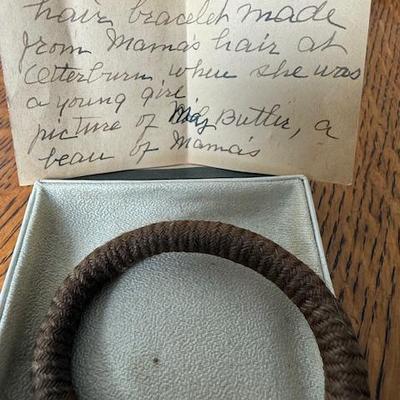 hair bracelet made
from Mama's hair at
Otterburn when she was
a young girl
picture of Butler, a
beau of Mama's